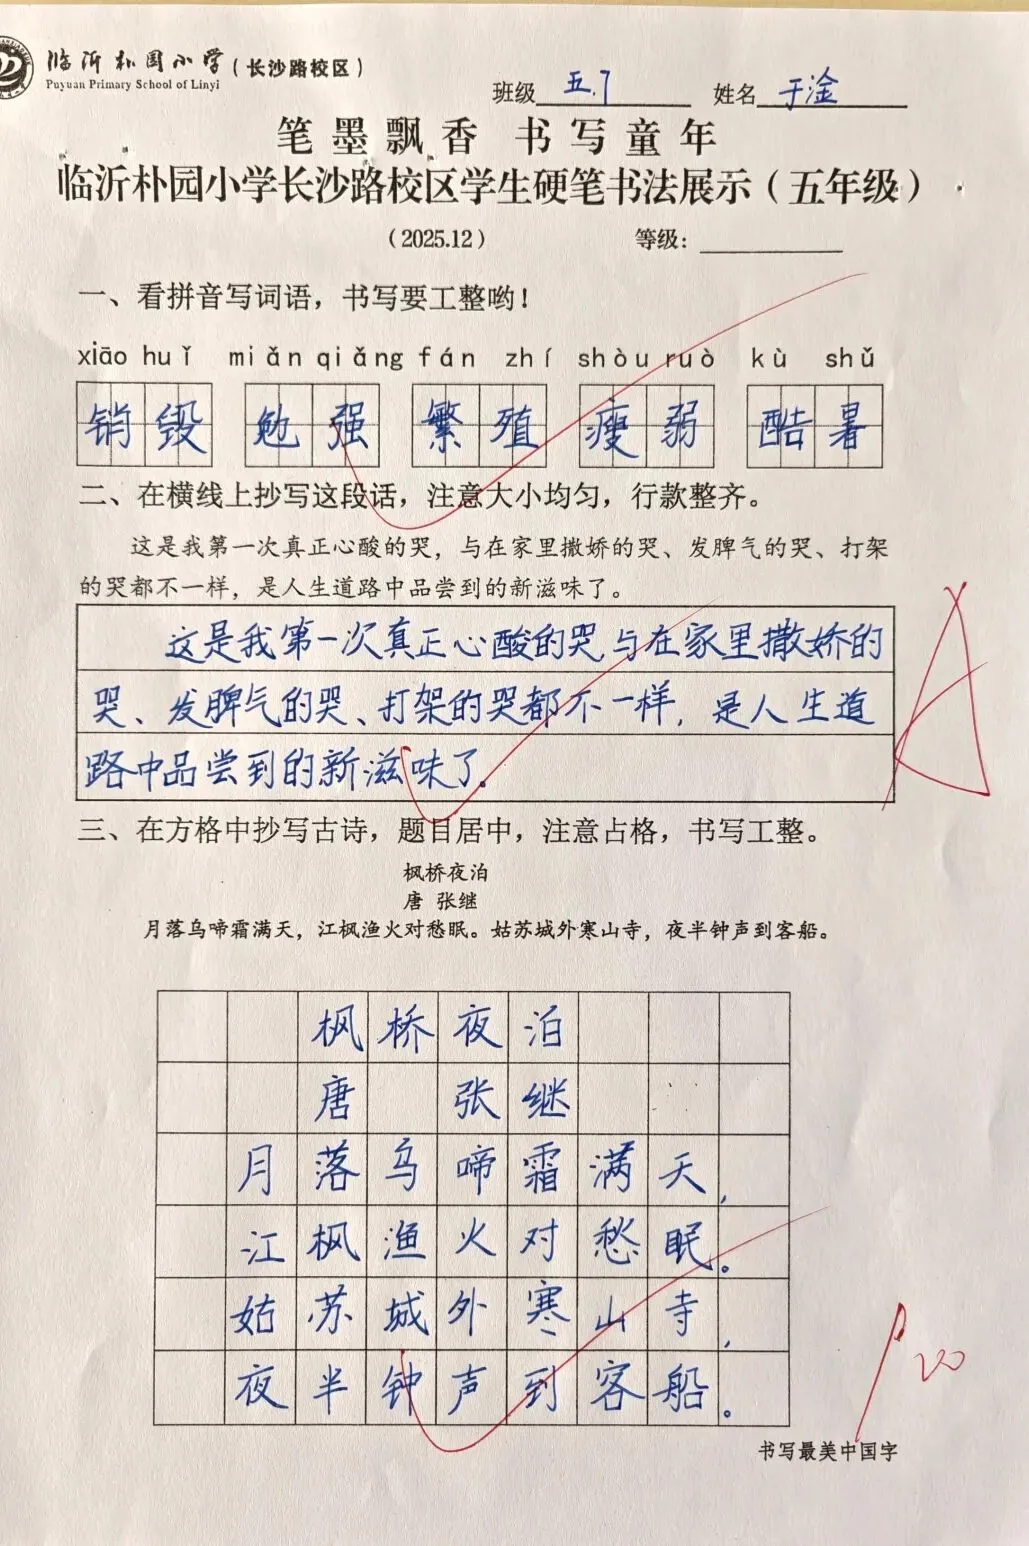 临沂朴园小学（长沙路校区）
Puyuan Primary School of Linyi
班级 五.7 姓名 于淦
笔墨飘香 书写童年
临沂朴园小学长沙路校区学生硬笔书法展示（五年级）
（2025.12） 等级：
一、看拼音写词语，书写要工整哟！
xiāo huǐ miǎn qiǎng fán zhí shòu ruò kù shǔ
销毁 勉强 繁殖 瘦弱 酷暑
二、在横线上抄写这段话，注意大小均匀，行款整齐。
这是我第一次真正心酸的哭，与在家里撒娇的哭、发脾气的哭、打架
的哭都不一样，是人生道路中品尝到的新滋味了。
这是我第一次真正心酸的哭，与在家里撒娇的
哭、发脾气的哭、打架的哭都不一样，是人生道
路中品尝到的新滋味了。
A
三、在方格中抄写古诗，题目居中，注意占格，书写工整。
枫桥夜泊
唐 张继
月落乌啼霜满天，江枫渔火对愁眠。姑苏城外寒山寺，夜半钟声到客船。
枫桥夜泊
唐 张继
月落乌啼霜满天，
江枫渔火对愁眠。
姑苏城外寒山寺，
夜半钟声到客船。
书写最美中国字